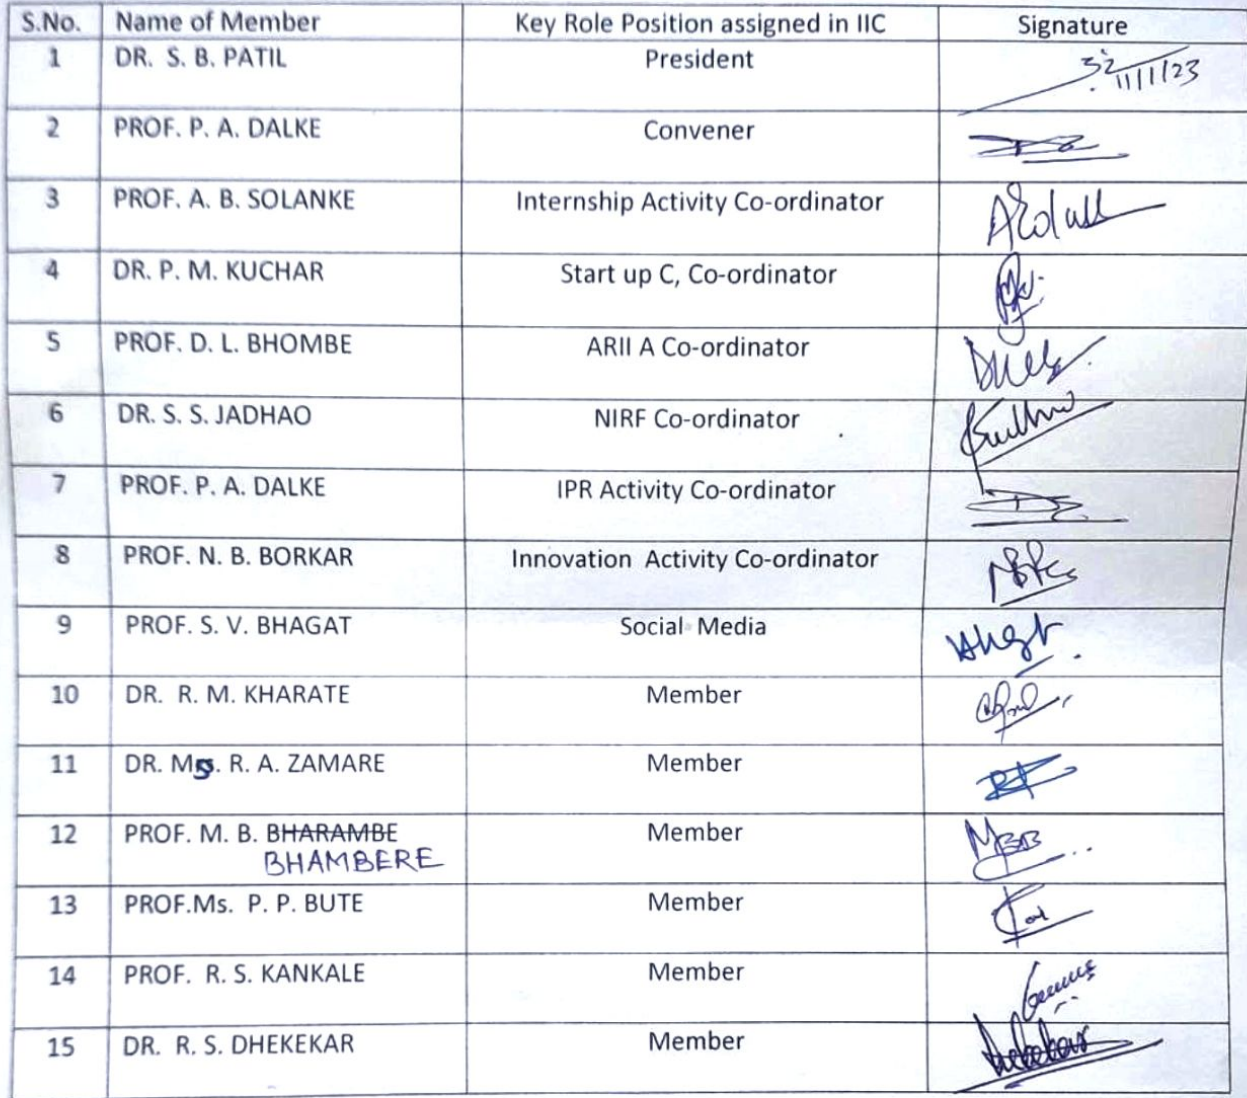 S.No. Name of Member Key Role Position assigned in IIC Signature
1 DR. S. B. PATIL President 11/1/23
2 PROF. P. A. DALKE Convener
3 PROF. A. B. SOLANKE Internship Activity Co-ordinator
4 DR. P. M. KUCHAR Start up C, Co-ordinator
5 PROF. D. L. BHOMBE ARII A Co-ordinator
6 DR. S. S. JADHAO NIRF Co-ordinator
7 PROF. P. A. DALKE IPR Activity Co-ordinator
8 PROF. N. B. BORKAR Innovation Activity Co-ordinator
9 PROF. S. V. BHAGAT Social Media
10 DR. R. M. KHARATE Member
11 DR. Ms. R. A. ZAMARE Member
12 PROF. M. B. BHARAMBE Member
BHAMBERE
13 PROF.Ms. P. P. BUTE Member
14 PROF. R. S. KANKALE Member
15 DR. R. S. DHEKEKAR Member